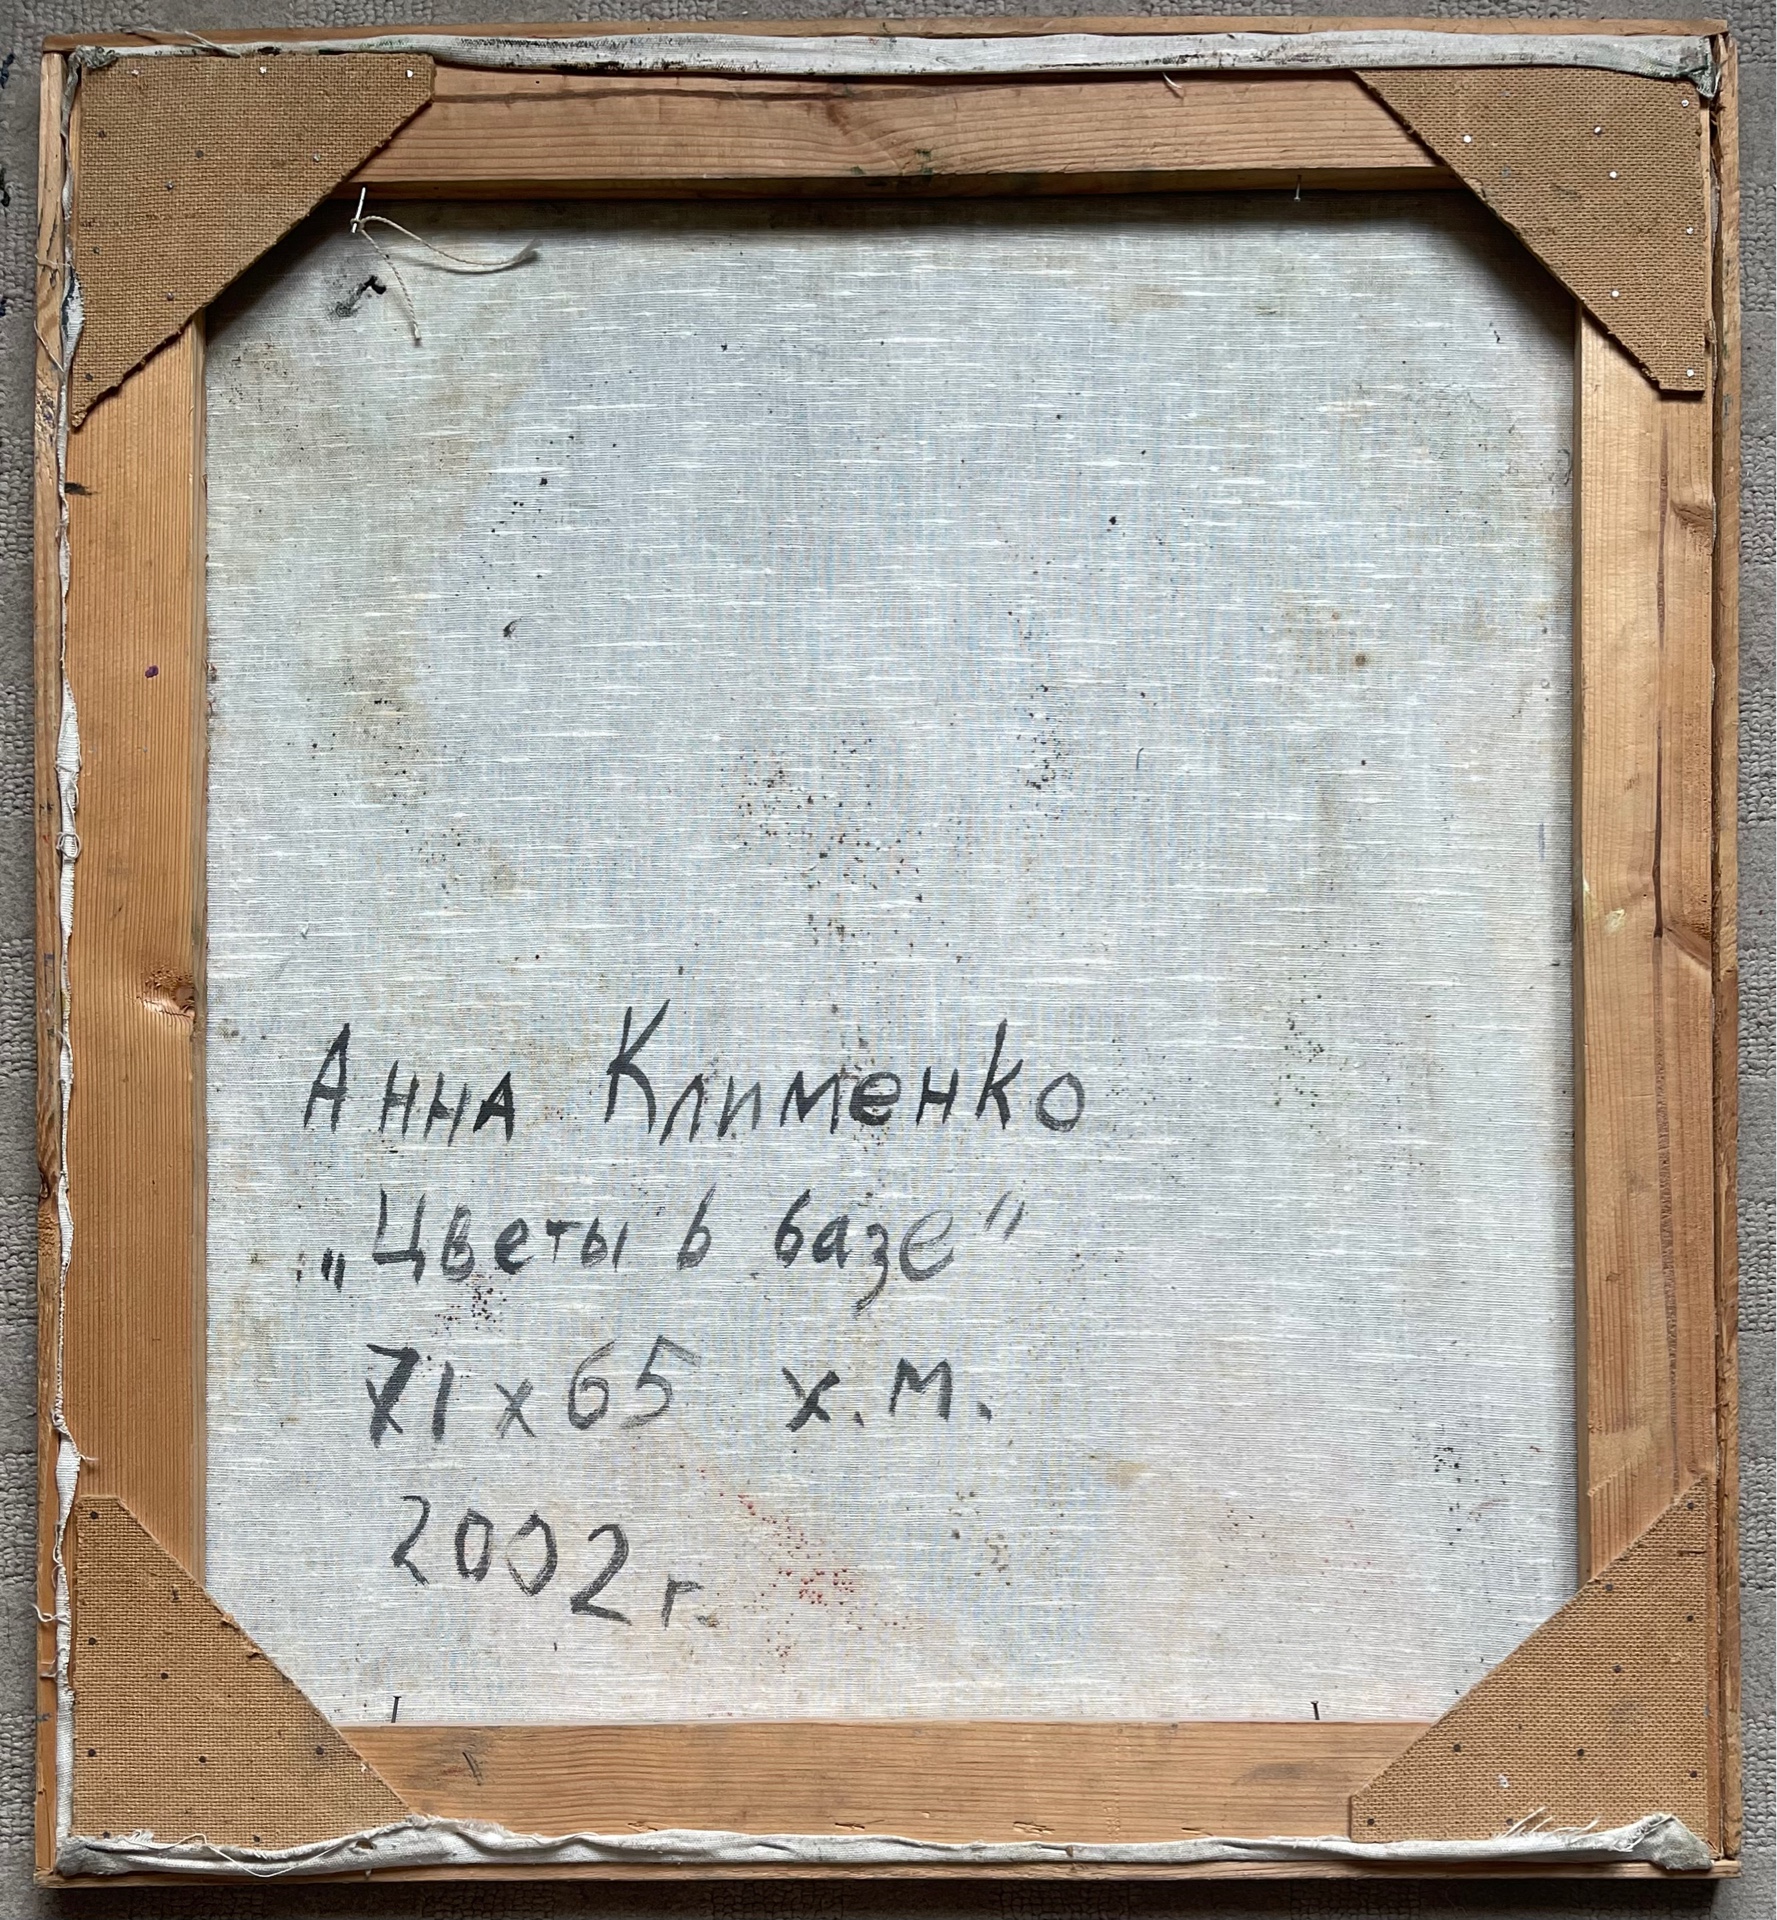 Анна Клименко
„Цветы в вазе"
71 x 65 х.м.
2002 г.